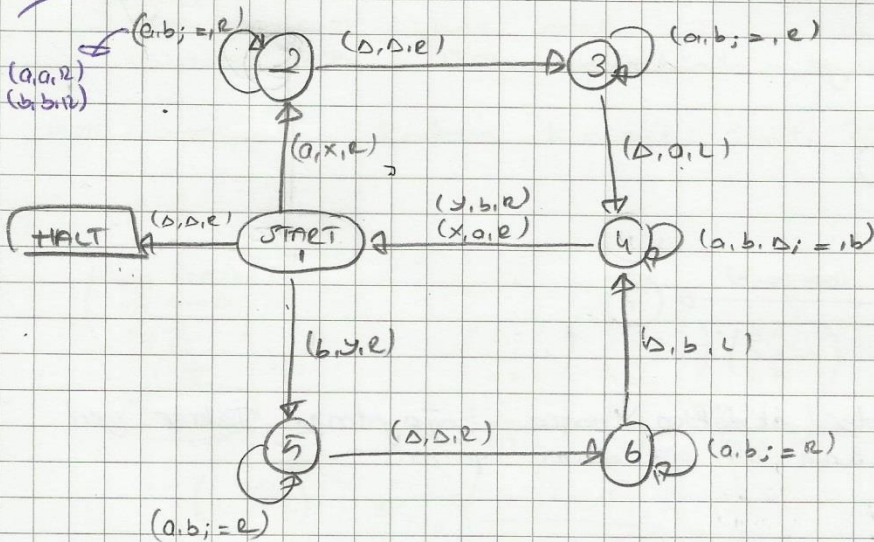 (a,b; =, R)
(a,a,R)
(b,b,R)
2
(Δ,Δ,R)
3
(a,b; =, R)
(a,x,R)
(Δ,a,L)
HALT
(Δ,Δ,R)
START
1
(y,b,R)
(x,a,R)
4
(a,b,Δ; =, b)
(b,y,R)
(Δ,b,L)
5
(Δ,Δ,R)
6
(a,b; = R)
(a,b; = R)